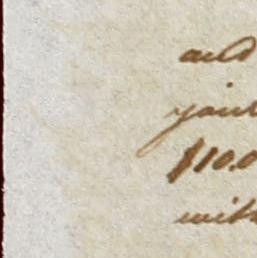 and
your
$10.0
with